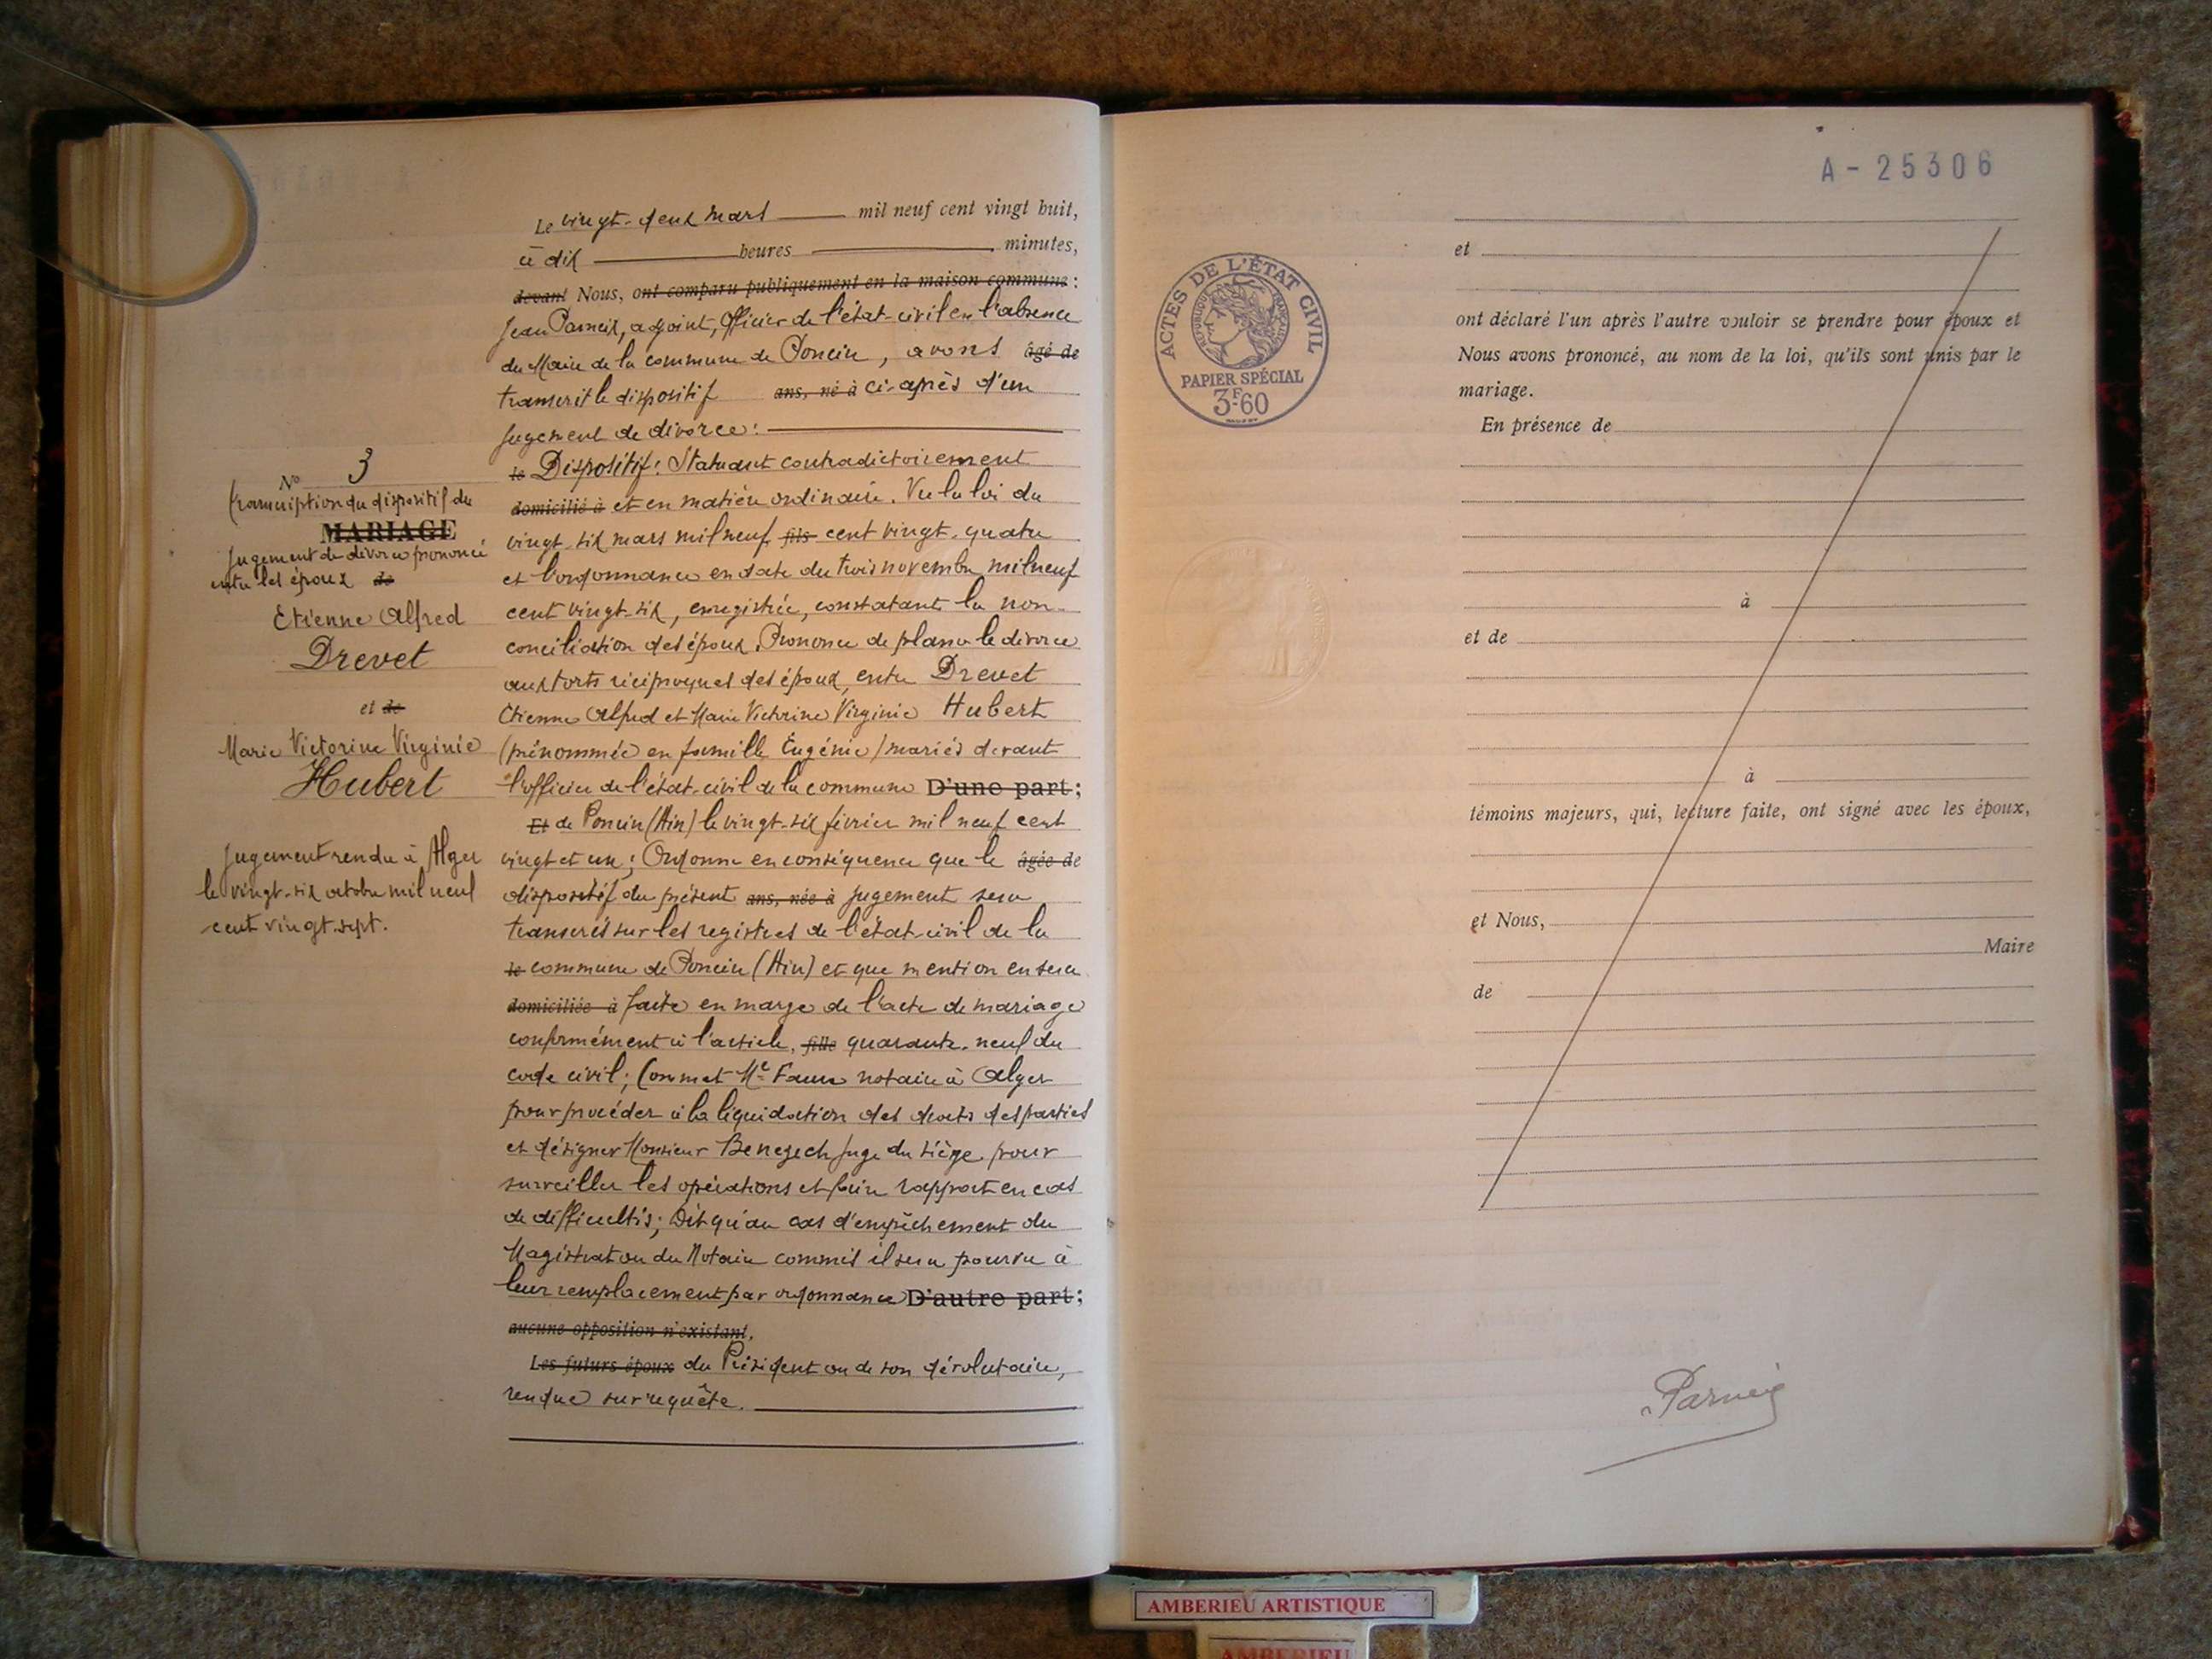 N° 3
transcription du dispositif du
MARIAGE
Jugement de divorce prononcé
entre les époux de
Etienne Alfred
Drevet
et de
Marie Victorine Virginie
Hubert
Jugement rendu à Alger
le vingt-six octobre mil neuf
cent vingt-sept.
Le vingt-deux mars mil neuf cent vingt huit,
à dix heures minutes,
devant Nous, ont comparu publiquement en la maison commune :
Jean , adjoint, Officier de l'état-civil en l'absence
du Maire de la commune de Poncin, avons âgé de
transcrit le dispositif ans, né à ci-après d'un
jugement de divorce :
le Dispositif : Statuant contradictoirement
domicilié à et en matière ordinaire. Vu la loi du
vingt-six mars mil neuf fils cent vingt-quatre
et l'ordonnance en date du trois novembre mil neuf
cent vingt-six, enregistrée, constatant la non-
conciliation des époux. Prononce de plano le divorce
aux torts réciproques des époux, entre Drevet
Etienne Alfred et Marie Victorine Virginie Hubert
(prénommée en famille Eugénie) mariés devant
l'officier de l'état-civil de la commune D'une part ;
Et de Poncin (Ain) le vingt-six février mil neuf cent
vingt et un ; Ordonne en conséquence que le âgée de
dispositif du présent ans, née à jugement sera
transcrit sur les registres de l'état-civil de la
le commune de Poncin (Ain) et que mention en sera
domiciliée à faite en marge de l'acte de mariage
conformément à l'article, fille quarante-neuf du
code civil ; Commet Me Faure notaire à Alger
pour procéder à la liquidation des droits des parties
et désigner Monsieur Benezech Juge du siège pour
surveiller les opérations et faire rapport en cas
de difficultés ; Dit qu'au cas d'empêchement du
Magistrat ou du Notaire commis il sera pourvu à
leur remplacement par ordonnance D'autre part ;
aucune opposition n'existant,
Les futurs époux du Président ou de son dévolutaire,
rendue sur requête.
A - 25306
ACTES DE L'ÉTAT CIVIL
RÉPUBLIQUE FRANÇAISE
PAPIER SPÉCIAL
3F60
et
ont déclaré l'un après l'autre vouloir se prendre pour époux et
Nous avons prononcé, au nom de la loi, qu'ils sont unis par le
mariage.
En présence de
à
et de
à
témoins majeurs, qui, lecture faite, ont signé avec les époux,
et Nous,
Maire
de
AMBERIEU ARTISTIQUE
AMBERIEU